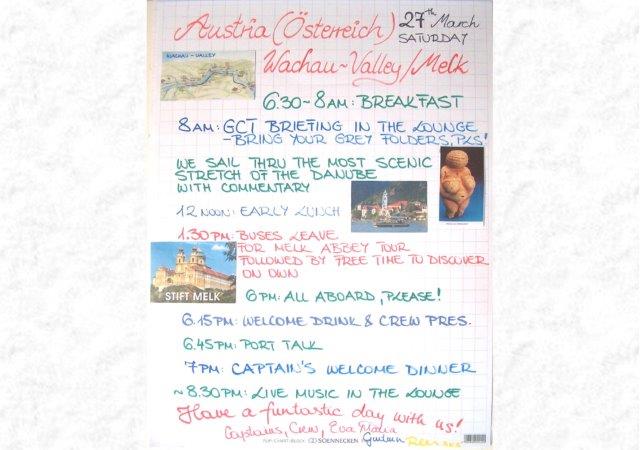 Austria (Österreich) 27th March
SATURDAY
WACHAU-VALLEY
Wachau~Valley/Melk
6.30~8AM: BREAKFAST
8AM: GCT BRIEFING IN THE LOUNGE
-BRING YOUR GREY FOLDERS, PLS!
WE SAIL THRU THE MOST SCENIC
STRETCH OF THE DANUBE
WITH COMMENTARY
12 NOON: EARLY LUNCH
1.30PM: BUSES LEAVE
FOR MELK ABBEY TOUR
FOLLOWED BY FREE TIME TO DISCOVER
ON OWN
STIFT MELK
6PM: ALL ABOARD, PLEASE!
6.15PM: WELCOME DRINK & CREW PRES.
6.45PM: PORT TALK
7PM: CAPTAIN'S WELCOME DINNER
~8.30PM: LIVE MUSIC IN THE LOUNGE
Have a funtastic day with us!
Captains, Crew, Eva Maria
FLIP-CHART-BLOCK SOENNECKEN